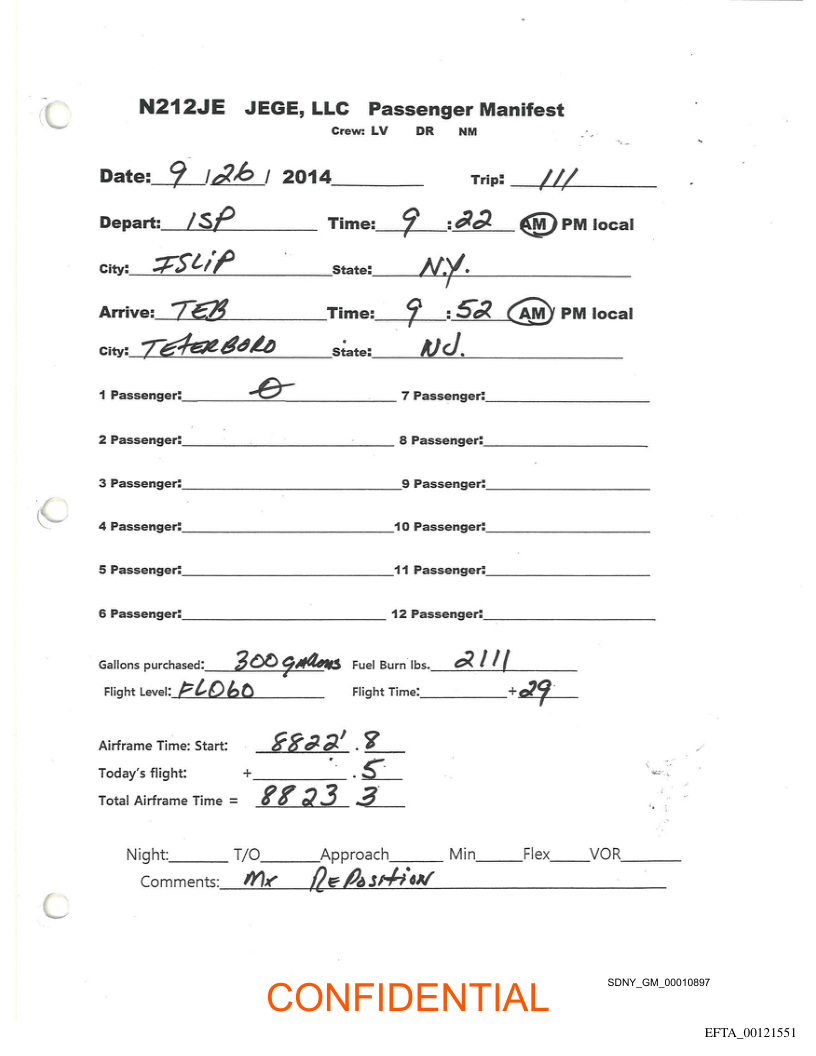 N212JE JEGE, LLC Passenger Manifest
Crew: LV DR NM
Date: 9 / 26 / 2014 Trip: 111
Depart: ISP Time: 9 : 22 AM PM local
City: ISLIP State: N.Y.
Arrive: TEB Time: 9 : 52 AM PM local
City: TETERBORO State: NJ.
1 Passenger: 0 7 Passenger:
2 Passenger: 8 Passenger:
3 Passenger: 9 Passenger:
4 Passenger: 10 Passenger:
5 Passenger: 11 Passenger:
6 Passenger: 12 Passenger:
Gallons purchased: 300 gallons Fuel Burn lbs. 2111
Flight Level: FL060 Flight Time: + 29
Airframe Time: Start: 8822 . 8
Today's flight: + . 5
Total Airframe Time = 8823 3
Night: T/O Approach Min Flex VOR
Comments: Mx REPOSITION
SDNY_GM_00010897
CONFIDENTIAL
EFTA_00121551